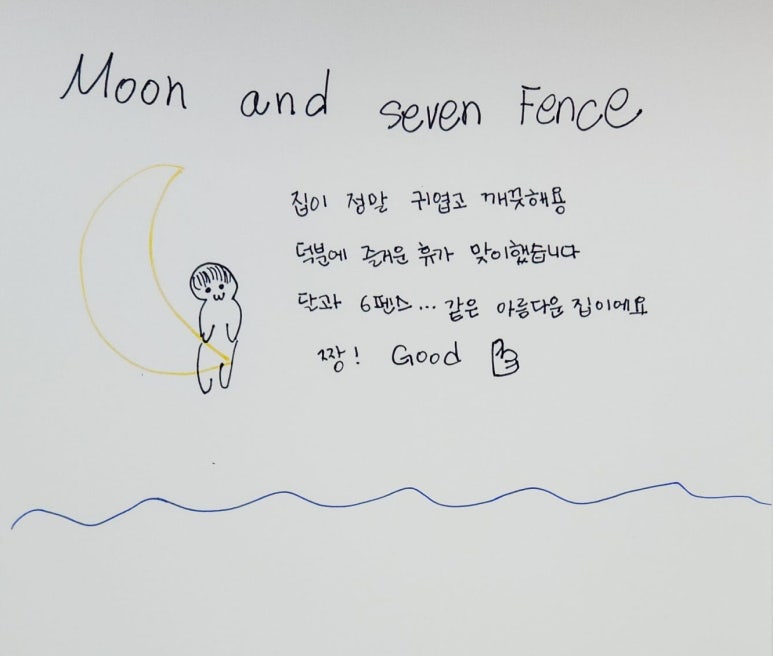 Moon and seven Fence
집이 정말 귀엽고 깨끗해용
덕분에 즐거운 휴가 맞이했습니다
단과 6펜스... 같은 아름다운 집이에요
짱! Good